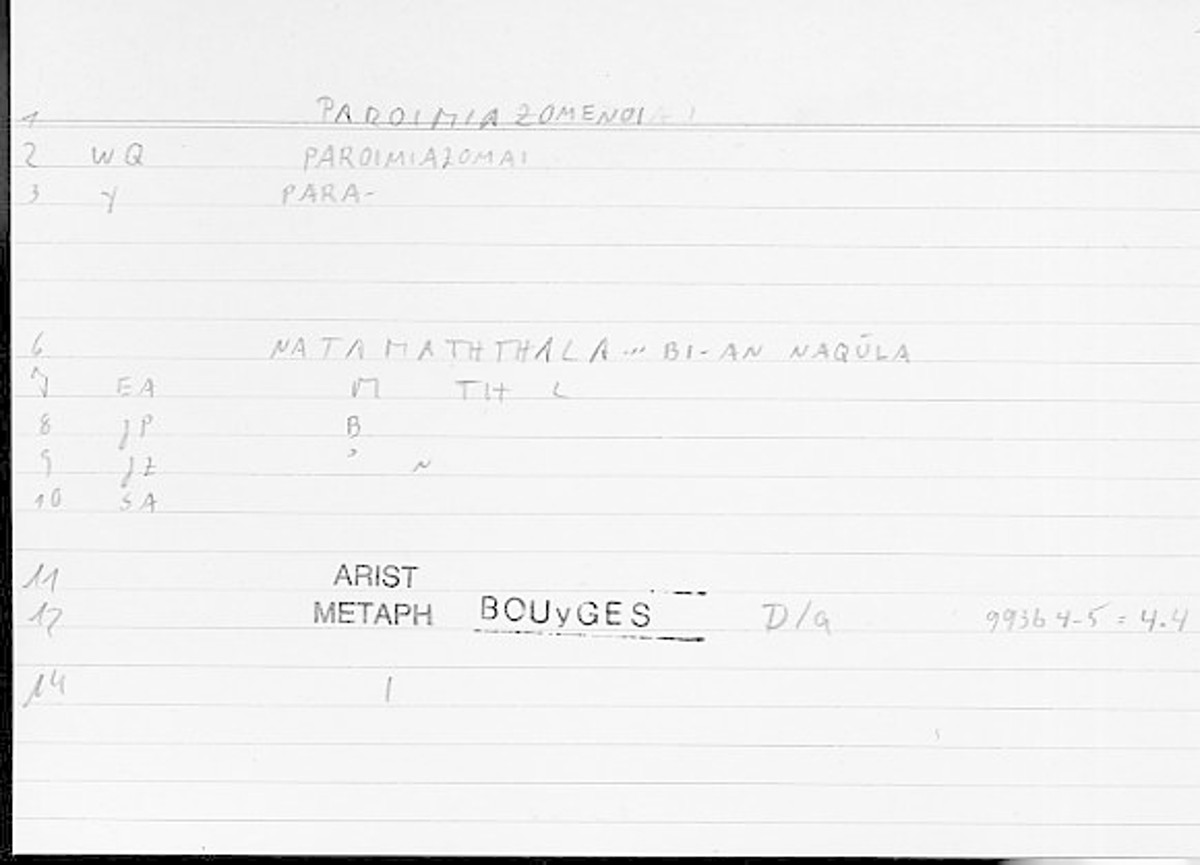 1 PAROIMIAZOMENOI
2 WQ PAROIMIAZOMAI
3 y PARA-
6 NATAMATHTHALA... BI-AN NAQŪLA
7 EA M TH L
8 JP B
9 JZ ' ~
10 SA
11 ARIST
12 METAPH BOUyGES D/a 993b 4-5 = 4.4
14 1